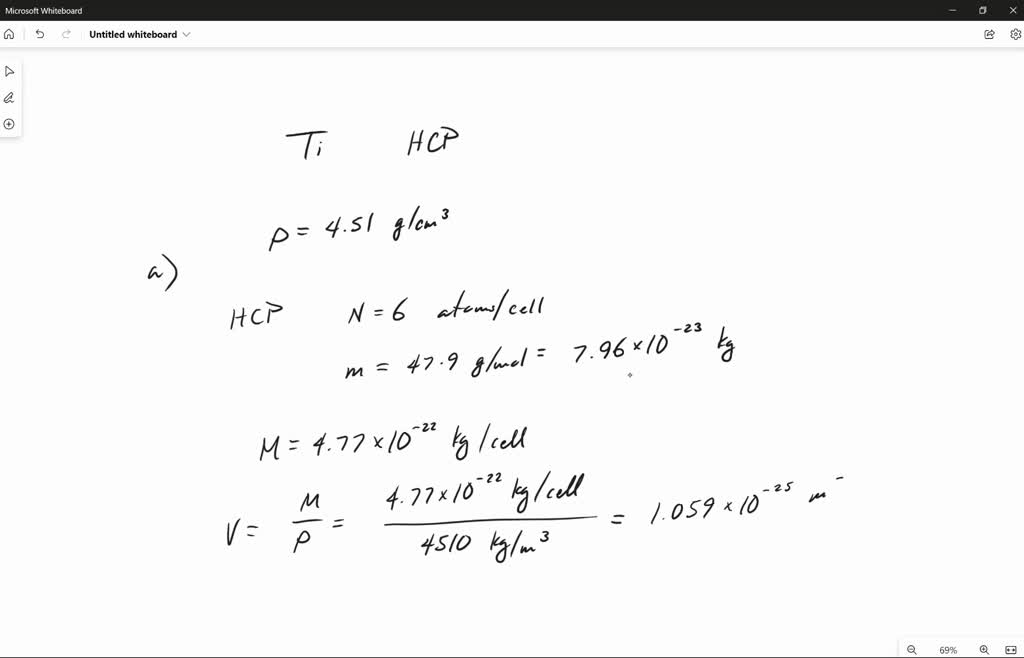 Microsoft Whiteboard
Untitled whiteboard
Ti HCP
ρ = 4.51 g/cm³
a)
HCP N = 6 atoms/cell
m = 47.9 g/mol = 7.96 × 10⁻²³ kg
M = 4.77 × 10⁻²² kg/cell
V = M/ρ = 4.77 × 10⁻²² kg/cell / 4510 kg/m³ = 1.059 × 10⁻²⁵ m⁻
69%